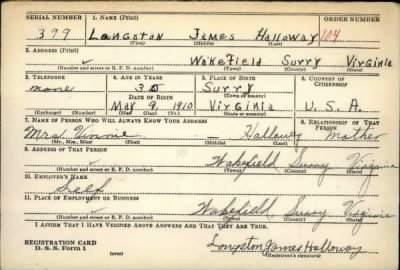 SERIAL NUMBER 1. NAME (Print) ORDER NUMBER
399 Langston James Halloway 104
(First) (Middle) (Last)
2. ADDRESS (Print)
Wakefield Surry Virginia
(Number and street or R. F. D. number) (Town) (County) (State)
3. TELEPHONE 4. AGE IN YEARS 5. PLACE OF BIRTH 6. COUNTRY OF CITIZENSHIP
none 30 Surry
DATE OF BIRTH (Town or county)
May 9, 1910 Virginia U. S. A.
(Exchange) (Number) (Mo.) (Day) (Yr.) (State or country)
7. NAME OF PERSON WHO WILL ALWAYS KNOW YOUR ADDRESS 8. RELATIONSHIP OF THAT PERSON
Mrs. Vinnie Halloway Mother
(Mr., Mrs., Miss) (First) (Middle) (Last)
9. ADDRESS OF THAT PERSON
Wakefield, Surry Virginia
(Number and street or R. F. D. number) (Town) (County) (State)
10. EMPLOYER'S NAME
Self
11. PLACE OF EMPLOYMENT OR BUSINESS
Wakefield, Surry, Virginia
(Number and street or R. F. D. number) (Town) (County) (State)
I AFFIRM THAT I HAVE VERIFIED ABOVE ANSWERS AND THAT THEY ARE TRUE.
REGISTRATION CARD
D. S. S. Form 1 (over) Langston James Halloway
(Registrant's signature)